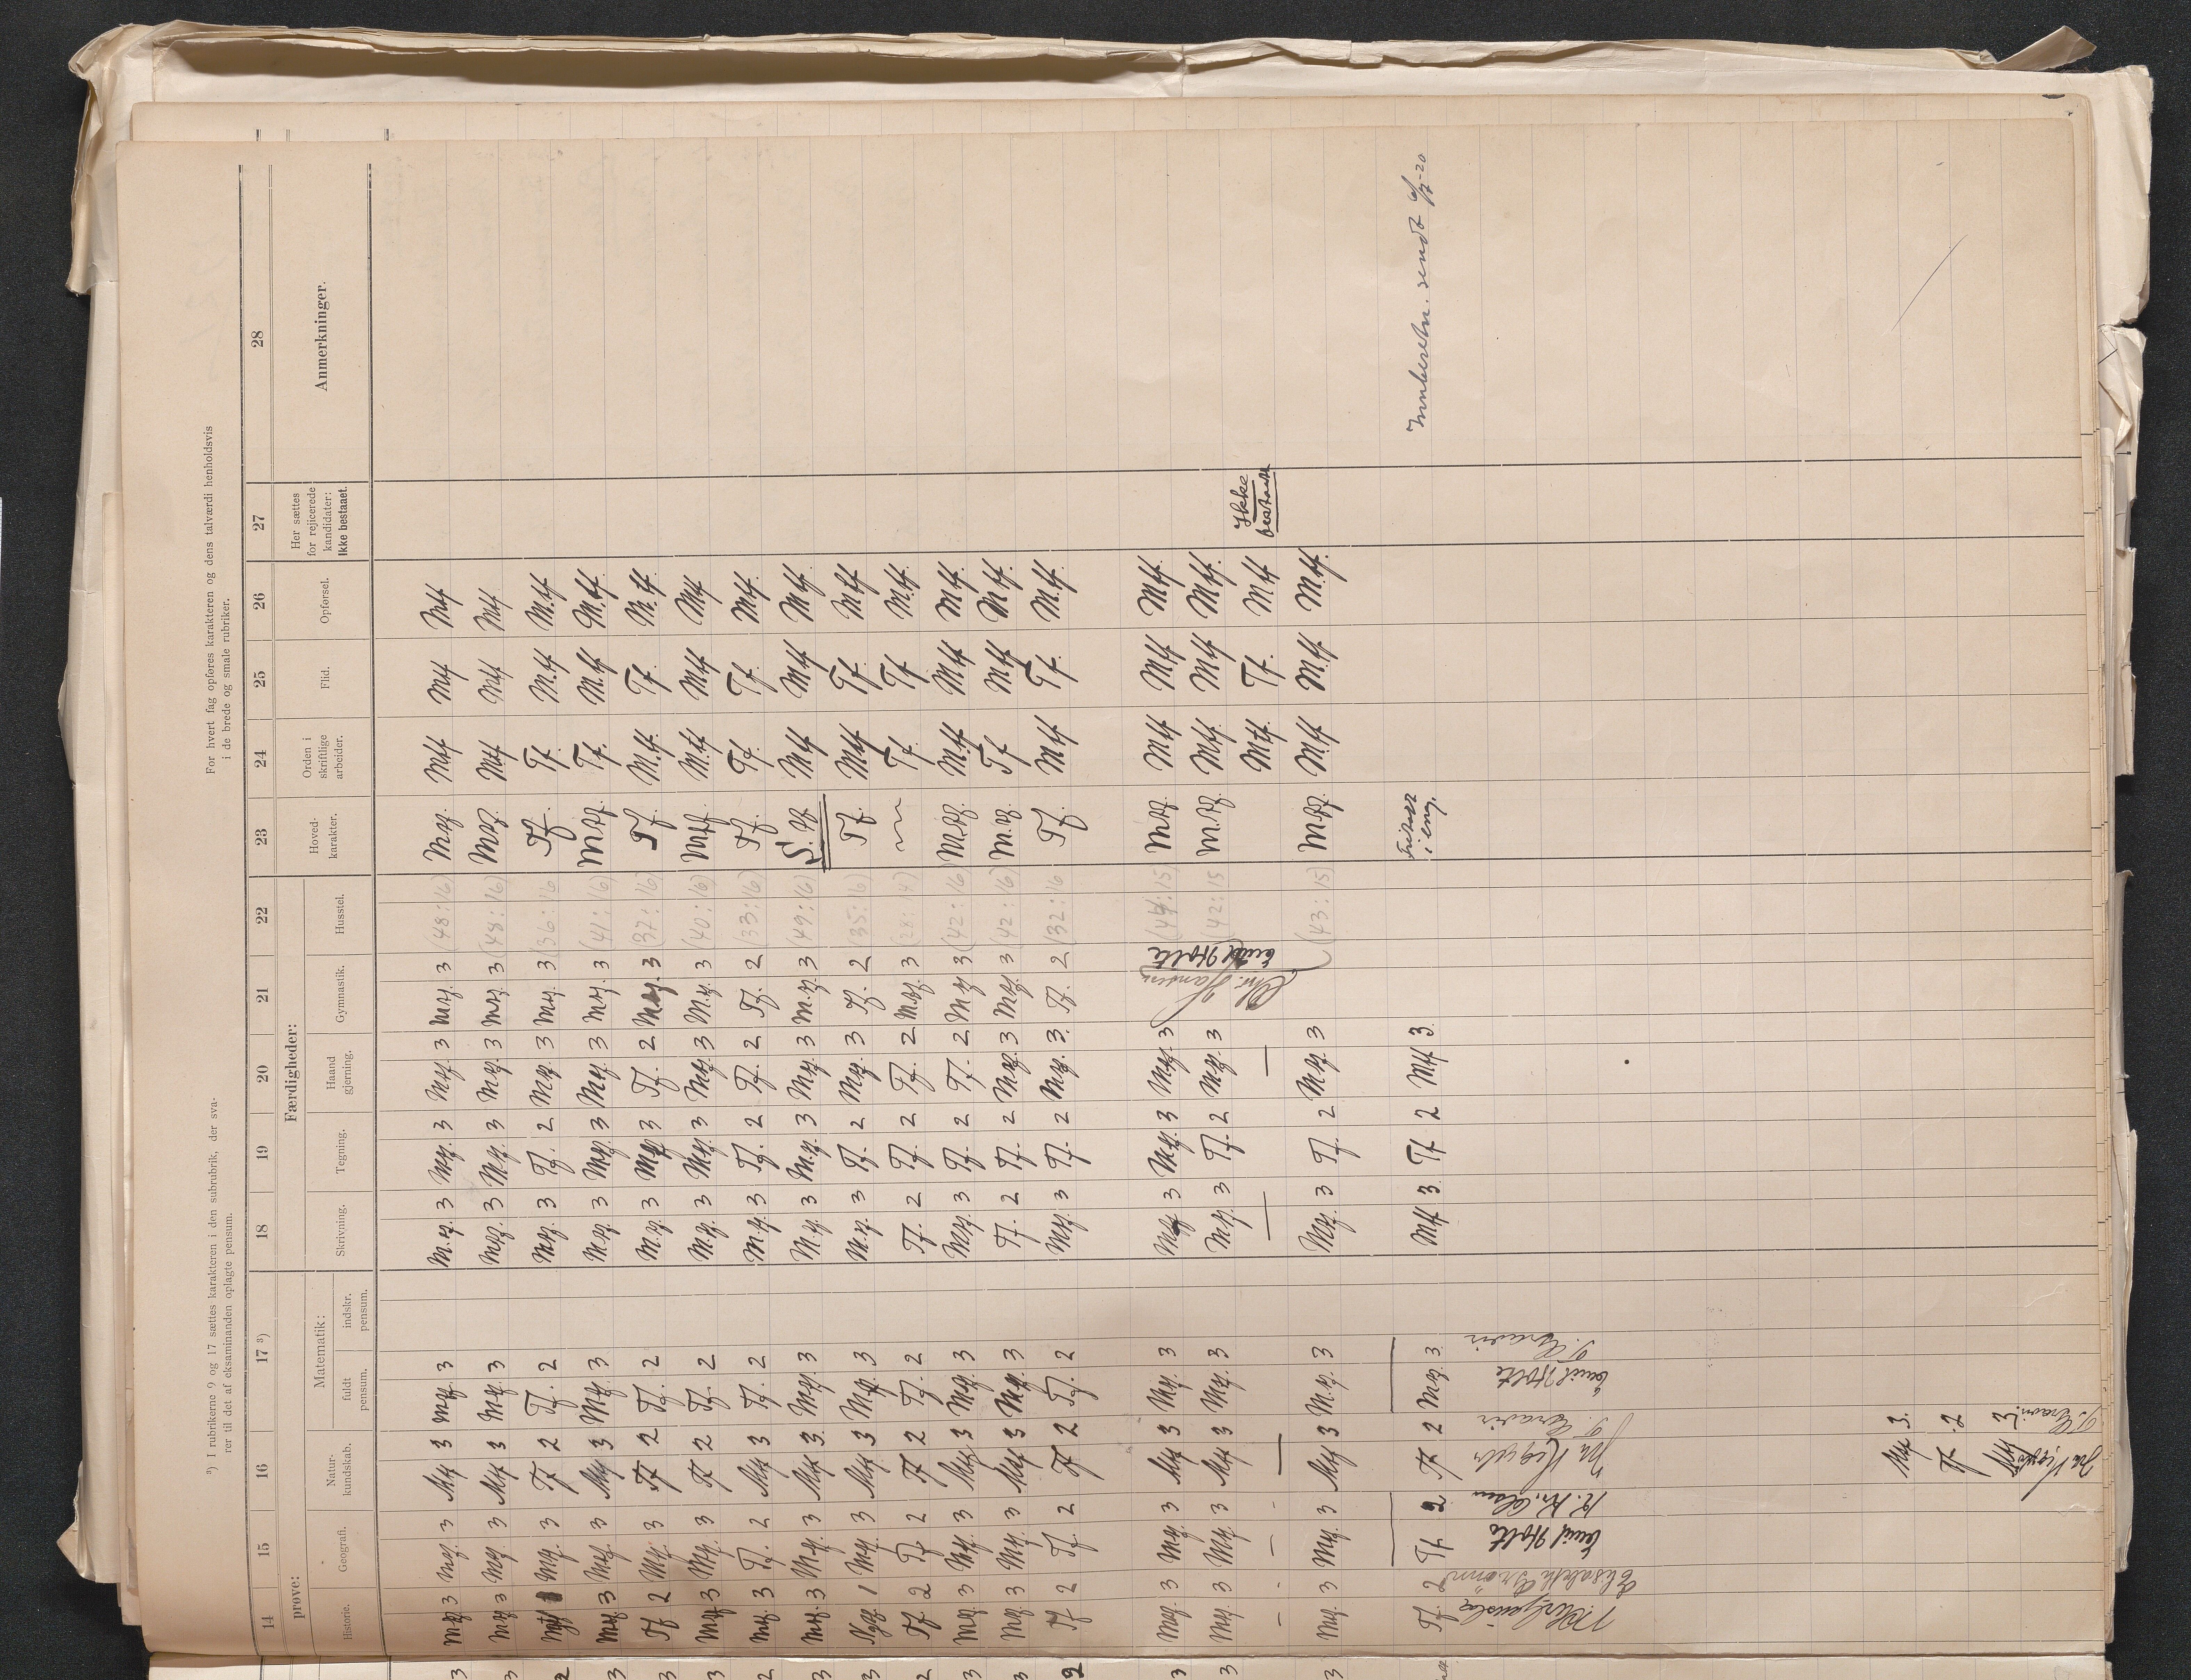 ³) I rubrikerne 9 og 17 sættes karakteren i den subrubrik, der sva-
rer til det af eksaminanden oplagte pensum.
For hvert fag opføres karakteren og dens talværdi henholdsvis
i de brede og smale rubriker.
14 15 16 17 ³) 18 19 20 21 22 23 24 25 26 27 28
prøve: Færdigheder:
Historie. Geografi. Natur-kundskab. Matematik: fuldt pensum. indskr. pensum. Skrivning. Tegning. Haand gjerning. Gymnastik. Husstel. Hoved-karakter. Orden i skriftlige arbeider. Flid. Opførsel. Her sættes for rejicerede kandidater: Ikke bestaaet. Anmerkninger.
Mg. 3 Mg. 3 Mtf 3 Mg. 3 M.g. 3 Mg. 3 Mg. 3 Mg. 3 (48:16) Mg. Mtf Mtf Mtf
Mg. 3 Mg. 3 Mtf 3 Mg. 3 Mg. 3 Mg. 3 Mg. 3 Mg. 3 (48:16) Mg. Mtf Mtf Mtf
Mg. 3 Tf 2 Tf. 2 Mg. 3 Tf. 2 Mg. 3 Mg. 3 (36:16 Tf. Tf. M.tf M.tf
Mg. 3 Mg. 3 Mtf 3 Mg. 3 Mg. 3 Mg. 3 Mg. 3 Mg. 3 (41:16) Mg. Tf. M.tf M.tf.
Tf 2 Mg. 3 Tf 2 Tf. 2 M.g. 3 Mg. 3 Tf. 2 Mg. 3 (37:16) Tf. M.tf. Tf. M.tf
Mg. 3 Mg. 3 Tf 2 Tf. 2 M.g. 3 Mg. 3 Mg. 3 M.g. 3 (40:16) Mg. M.tf Mtf Mtf
Mg. 3 Tf. 2 Mtf 3 Tf. 2 M.g. 3 Tf. 2 Tf. 2 Tf. 2 (33:16) Tf. Tf. Tf. Mtf.
Mg. 3 M.g. 3 Mtf 3. Mg. 3 M.g. 3 M.g. 3 Mg. 3 M.g. 3 (49:16) Mtf Mtf Mtf.
1 Mg. 3 Mtf 3 Mg. 3 M.g. 3 Tf. 2 Mg. 3 Tf. 2 (35:16) Tf. Mtf Tf. Mtf
Tf. 2 Tf. 2 Tf 2 Tf. 2 Tf. 2 Tf. 2 Tf. 2 M.g. 3 (28:14) Tf. Tf M.tf.
Mg. 3 Mg. 3 Mtf 3 Mg. 3 Mg. 3 Tf. 2 Tf. 2 Mg 3 (42:16) Mg. M.tf M.tf M.tf.
Mg. 3 Mg. 3 Mtf 3 Mg. 3 Tf. 2 Tf. 2 Mg. 3 Mg. 3 (42:16) M.g. Tf Mtf M.tf.
Tf 2 Tf. 2 Tf 2 Tf. 2 Mg. 3 Tf. 2 Mg. 3. Tf. 2 (32:16 Tf. Mtf Tf. M.tf.
Mg. 3 Mg. 3 Mtf 3 Mg. 3 Mg 3 Mg. 3 Mg. 3 Chr. Hansen Emil Holte (44:15) Mg. Mtf Mtf Mtf.
Mg. 3 Mg. 3 Mtf 3 Mg. 3 M.g. 3 Tf. 2 Mg. 3 (42:15 M.g. Mtf Mtf Mtf.
— — — — — Mtf. Tf. Mtf Ikke bestaaet
Mg. 3 Mg. 3 Mtf 3 M.g. 3 Mg. 3 Tf. 2 M.g. 3 (43:15) Mg. M.tf M.tf M.tf.
Tf. 2 Tf. 2 Tf 2 Mg. 3 Mtf 3 Tf 2 Mtf 3. i eng. Innberetn. sendt 6/7-20
Elisabeth Emil Holte Emil Holte
Mtf 3.
Tf. 2
Mtf 3